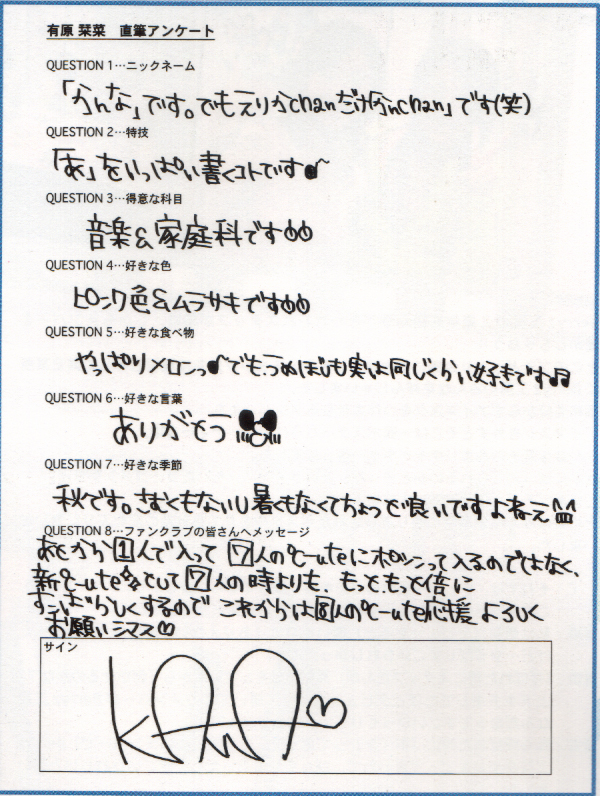 有原 栞菜　直筆アンケート
QUESTION 1…ニックネーム
「かんな」です。でもえりかchanだけ「かんchan」です(笑)
QUESTION 2…特技
「あ」をいっぱい書くコトです♪
QUESTION 3…得意な科目
音楽&家庭科です
QUESTION 4…好きな色
ピンク色&ムラサキです
QUESTION 5…好きな食べ物
やっぱりメロンっ♪でも、うめぼしも実は同じくらい好きです♫
QUESTION 6…好きな言葉
ありがとう
QUESTION 7…好きな季節
秋です。さむくもないし暑くもなくてちょうど良いですよねえ
QUESTION 8…ファンクラブの皆さんへメッセージ
あとから1人で入って7人の℃-uteにポツンって入るのではなく、
新℃-uteとして7人の時よりも、もっと、もっと倍に
すっばらしくするので これからは8人の℃-ute応援 よろしく
お願いシマス♡
サイン